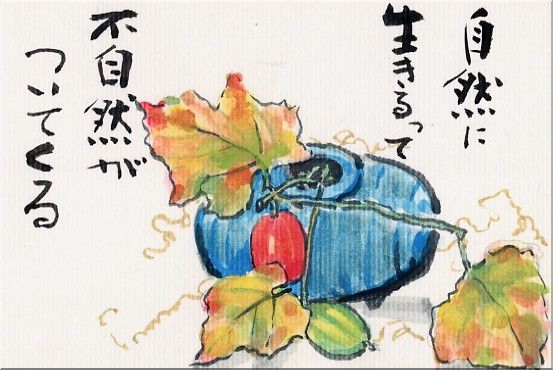 自然に
生きるって
不自然が
ついてくる